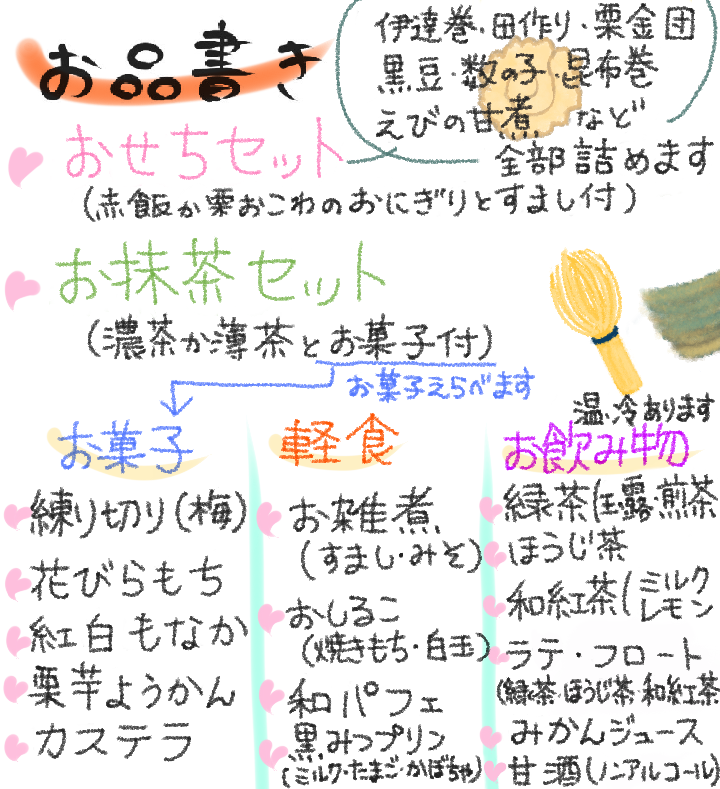 お品書き
伊達巻・田作り・栗金団
黒豆・数の子・昆布巻
えびの甘煮 など
全部詰めます
おせちセット
(赤飯か栗おこわのおにぎりとすまし付)
お抹茶セット
(濃茶か薄茶とお菓子付)
お菓子えらべます
お菓子
練り切り(梅)
花びらもち
紅白もなか
栗芋ようかん
カステラ
軽食
お雑煮
(すまし・みそ)
おしるこ
(焼きもち・白玉)
和パフェ
黒みつプリン
(ミルク・たまご・かぼちゃ)
温・冷あります
お飲み物
緑茶(玉露・煎茶
ほうじ茶
和紅茶(ミルク
レモン
ラテ・フロート
(緑茶・ほうじ茶・和紅茶
みかんジュース
甘酒(ノンアルコール)